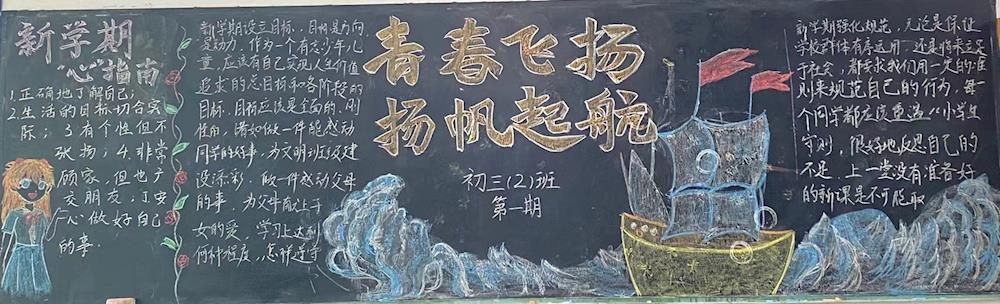 新学期
“心”指南
1.正确地了解自己；
2.生活的目标切合实
际；3有个性但不
张扬；4.非常
顾家，但也广
交朋友；5安
心做好自己
的事.
新学期设立目标、目标是方向，
是动力，作为一个有志少年儿
童，应该有自己实现人生价值
追求的总目标和各阶段的
目标，目标应该是全面的、刚
性的，诸如做一件能感动
同学的好事，为文明班级建
设添彩；做一件感动父母
的事，为父母献上子
女的爱，学习上达到
何种程度，怎样遵守
青春飞扬
扬帆起航
初三(2)班
第一期
新学期强化规范，无论是保证
学校群体有序运用，还是将来立足
于社会，都要求我们用一定的准
则来规范自己的行为，每一
个同学都应度重温《小学生
守则，很好地反思自己的
不足，上一堂没有准备好
的新课是不可能取